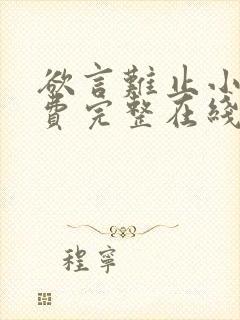 欲言難止小
費完整在綫
程寧